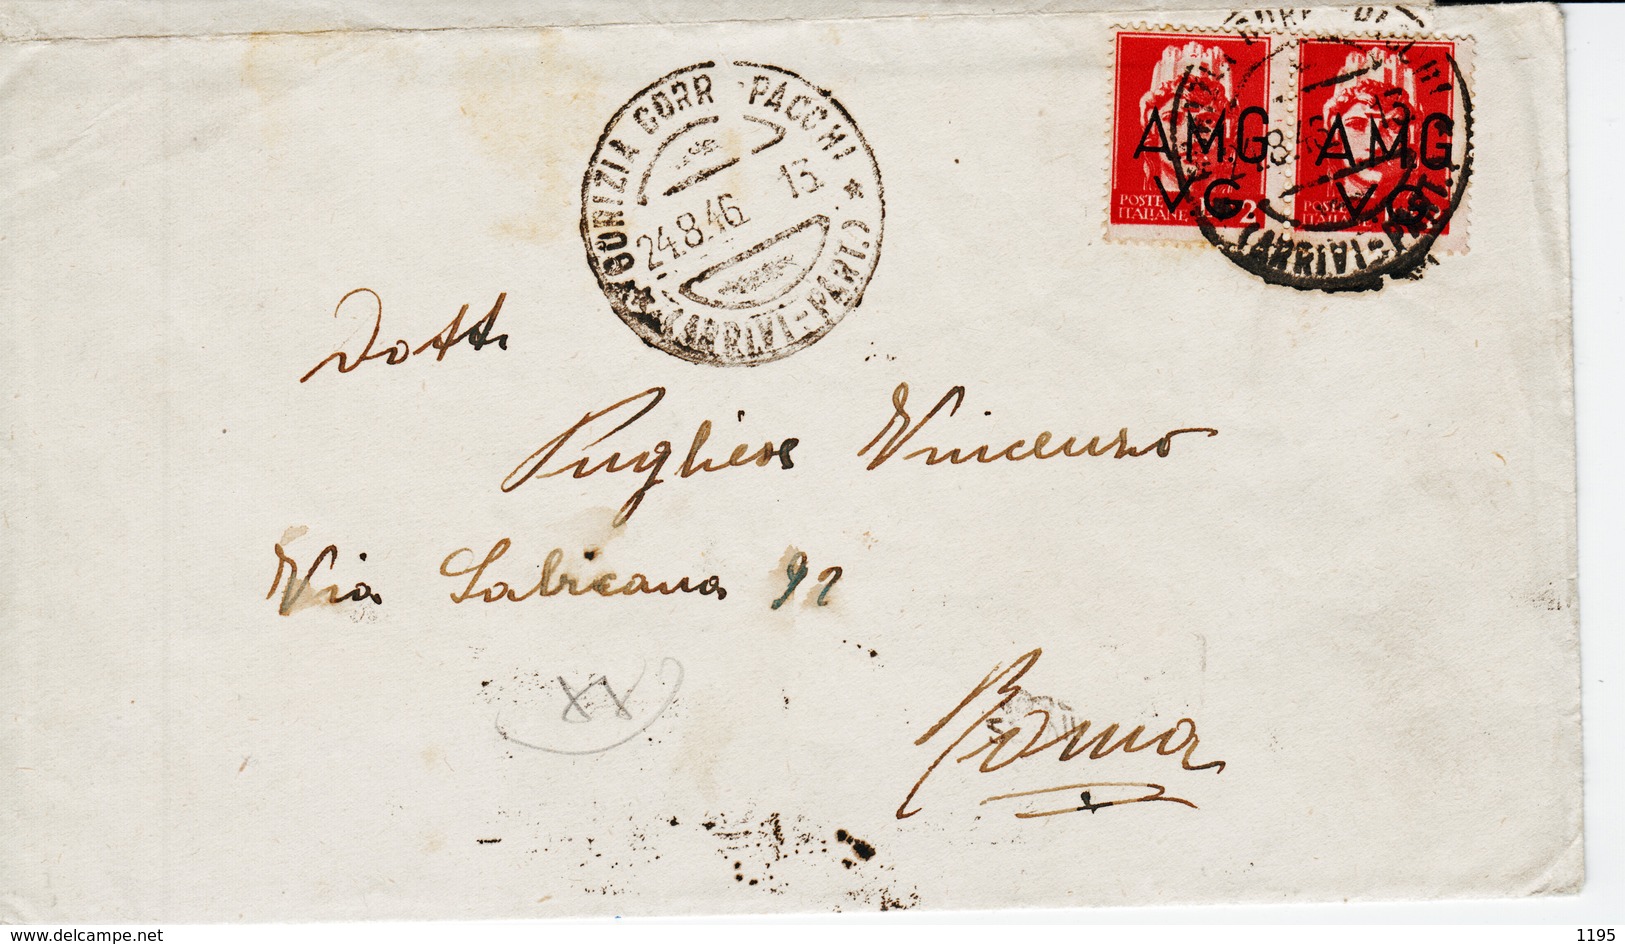 GORIZIA CORR PACCHI
(ARRIVI-PART.)
24.8.46 13
AMG
VG
AMG
VG
POSTE
ITALIANE
L. 2
POSTE
ITALIANE
(ARRIVI-PART.)
Dott.
Pugliese Vincenzo
Via Labicana 92
Roma
www.delcampe.net
1195